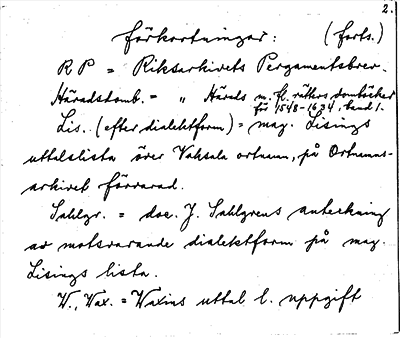 2.
Förkortningar: (forts.)
R P = Riksarkivets Pergamentsbrev.
Häradsdomb. = " Härads m. fl. rätters domböcker
för 1548-1634, band 1.
Lis. (efter dialektform) = mag. Lisings
uttalslista över Vaksala ortnamn, på Ortnamns-
arkivet förvarad.
Sahlgr. = doc. J. Sahlgrens anteckning
av motsvarande dialektform på mag.
Lisings lista.
W., Wax. = Waxins uttal l. uppgift